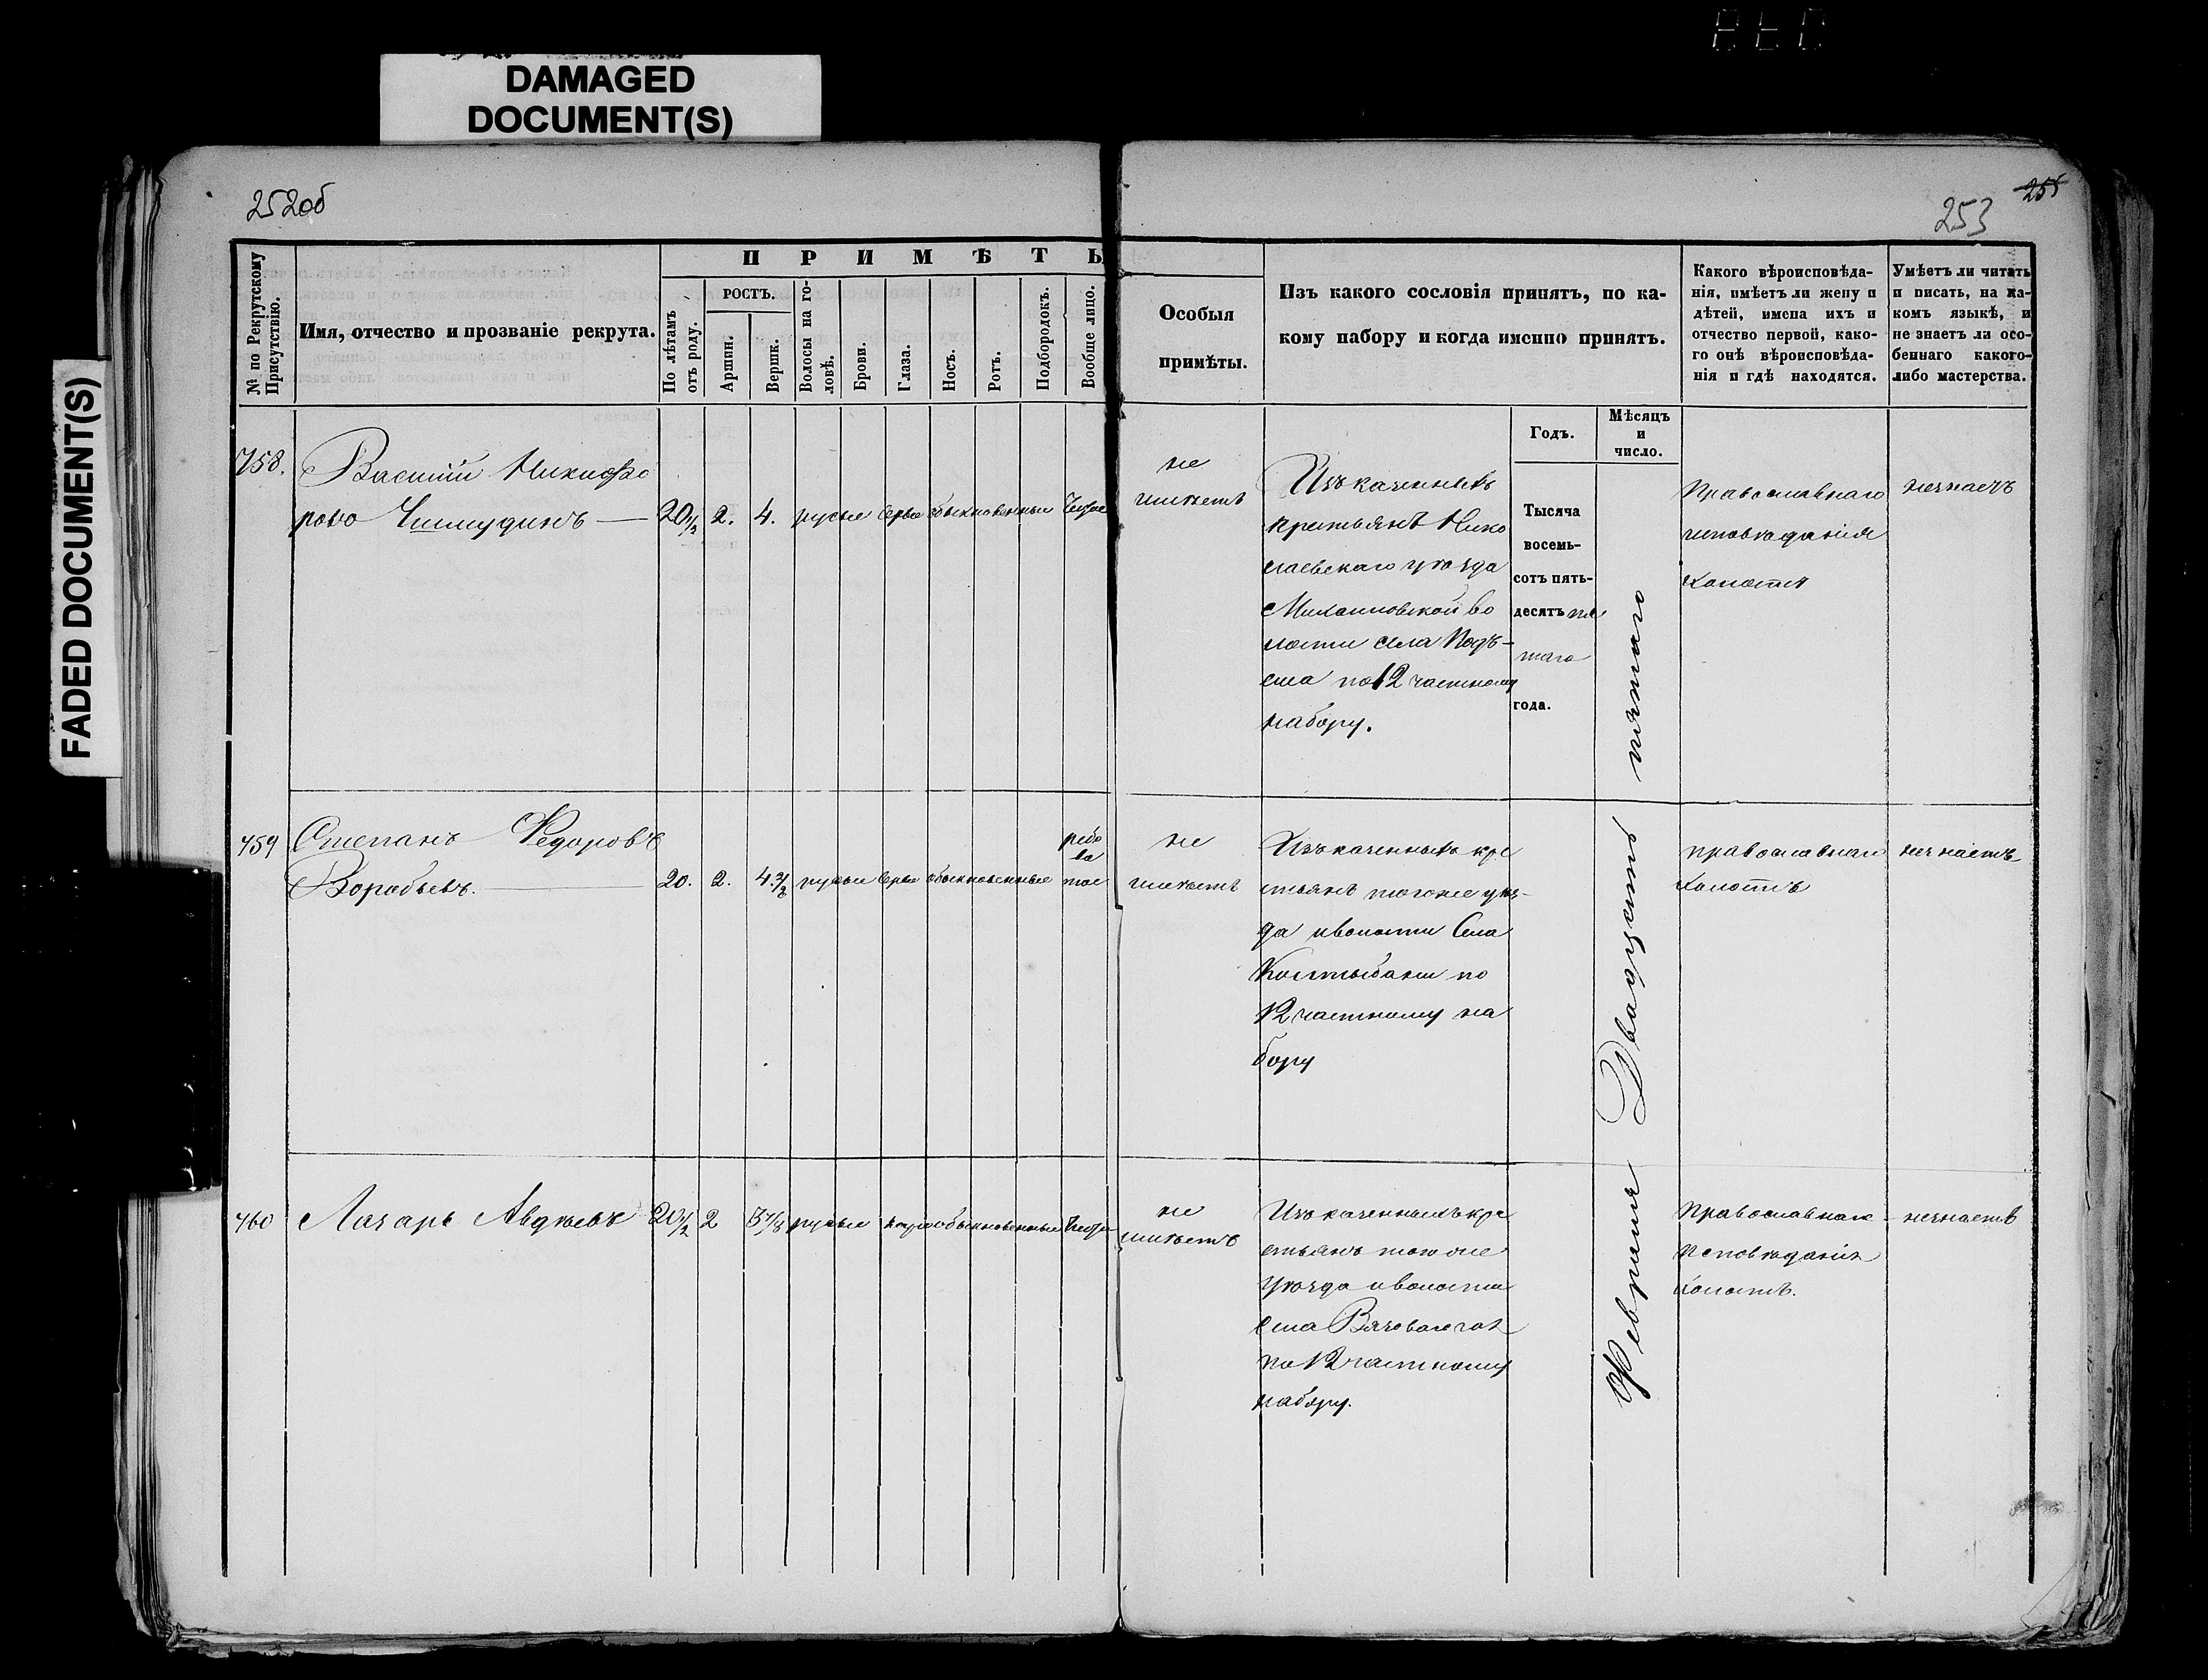 DAMAGED
DOCUMENT(S)
FADED DOCUMENT(S)
252об
253
255
№ по Рекрутскому
Присутствію.
Имя, отчество и прозваніе рекрута.
ПРИМѢТЫ
По лѣтамъ
отъ роду.
РОСТЪ.
Аршин.
Вершк.
Волосы на го-
ловѣ.
Брови.
Глаза.
Носъ.
Ротъ.
Подбородокъ.
Вообще лицо.
Особыя
примѣты.
Изъ какого сословія принятъ, по ка-
кому набору и когда именно принятъ.
Какого вѣроисповѣда-
нія, имѣетъ ли жену и
дѣтей, имена ихъ и
отчество первой, како-
го онѣ вѣроисповѣда-
нія и гдѣ находятся.
Умѣетъ ли читать
и писать, на ка-
комъ языкѣ, и
не знаетъ ли осо-
беннаго какого-
либо мастерства.
Годъ.
Мѣсяцъ
и
число.
758.
Василій Никифо
рово
20 1/2
2.
4.
русые
серые
обыкновенные
чистое
не
имѣетъ
Изъ казенныхъ
крестьянъ Нико
лаевскаго уѣзда
Михаиловской во
лости села Подъ-
ема по 12 частному
набору.
Тысяча
восемь-
сотъ пять-
десятъ пя
таго
года.
Православнаго
исповѣданія
холостъ
незнаетъ
759
Степанъ Федоровъ
Воробьевъ.
20.
2.
4.
русые
серые
обыкновенные
рябо
ва
тое
не
имѣетъ
Изъ казенныхъ кре
стьянъ тогоже уѣз-
да и волости Села
по
12 частному на
бору
православнаго
холостъ
незнаетъ
760
Лазарь Авдѣевъ
20 1/2
2
русые
карие
обыкновенные
чистое
не
имѣетъ
Изъ казенныхъ кре
стьянъ тогоже
уѣзда и волости
села
по 12 частному
набору.
Православнаго
исповѣданія
холостъ.
незнаетъ
Февраля Двадцать пятаго